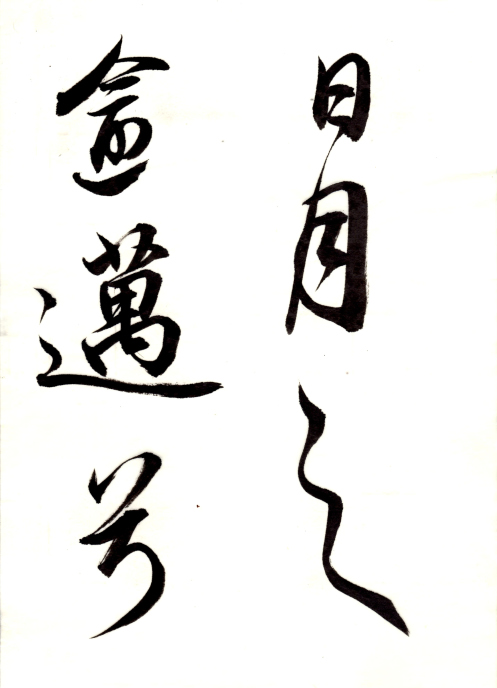 日月之
愈邁兮